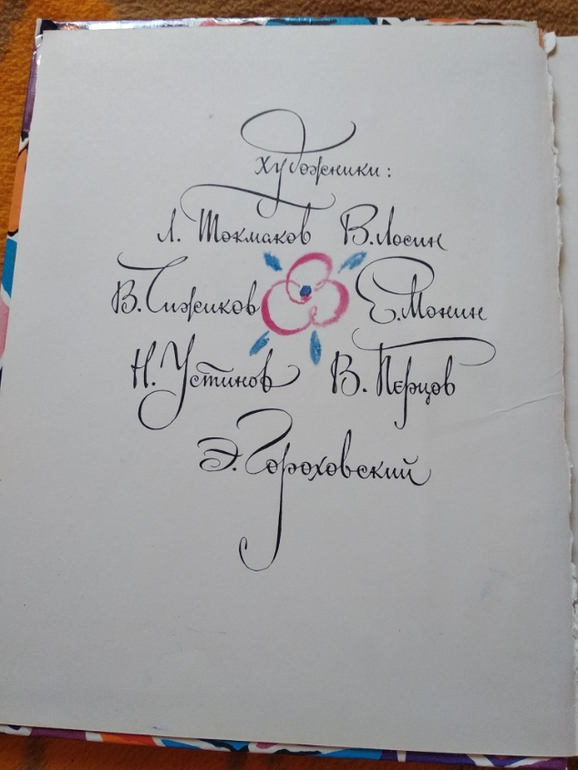 Художники:
Л. Токмаков В. Лосин
В. Чижиков Е. Монин
Н. Устинов В. Перцов
Э. Гороховский